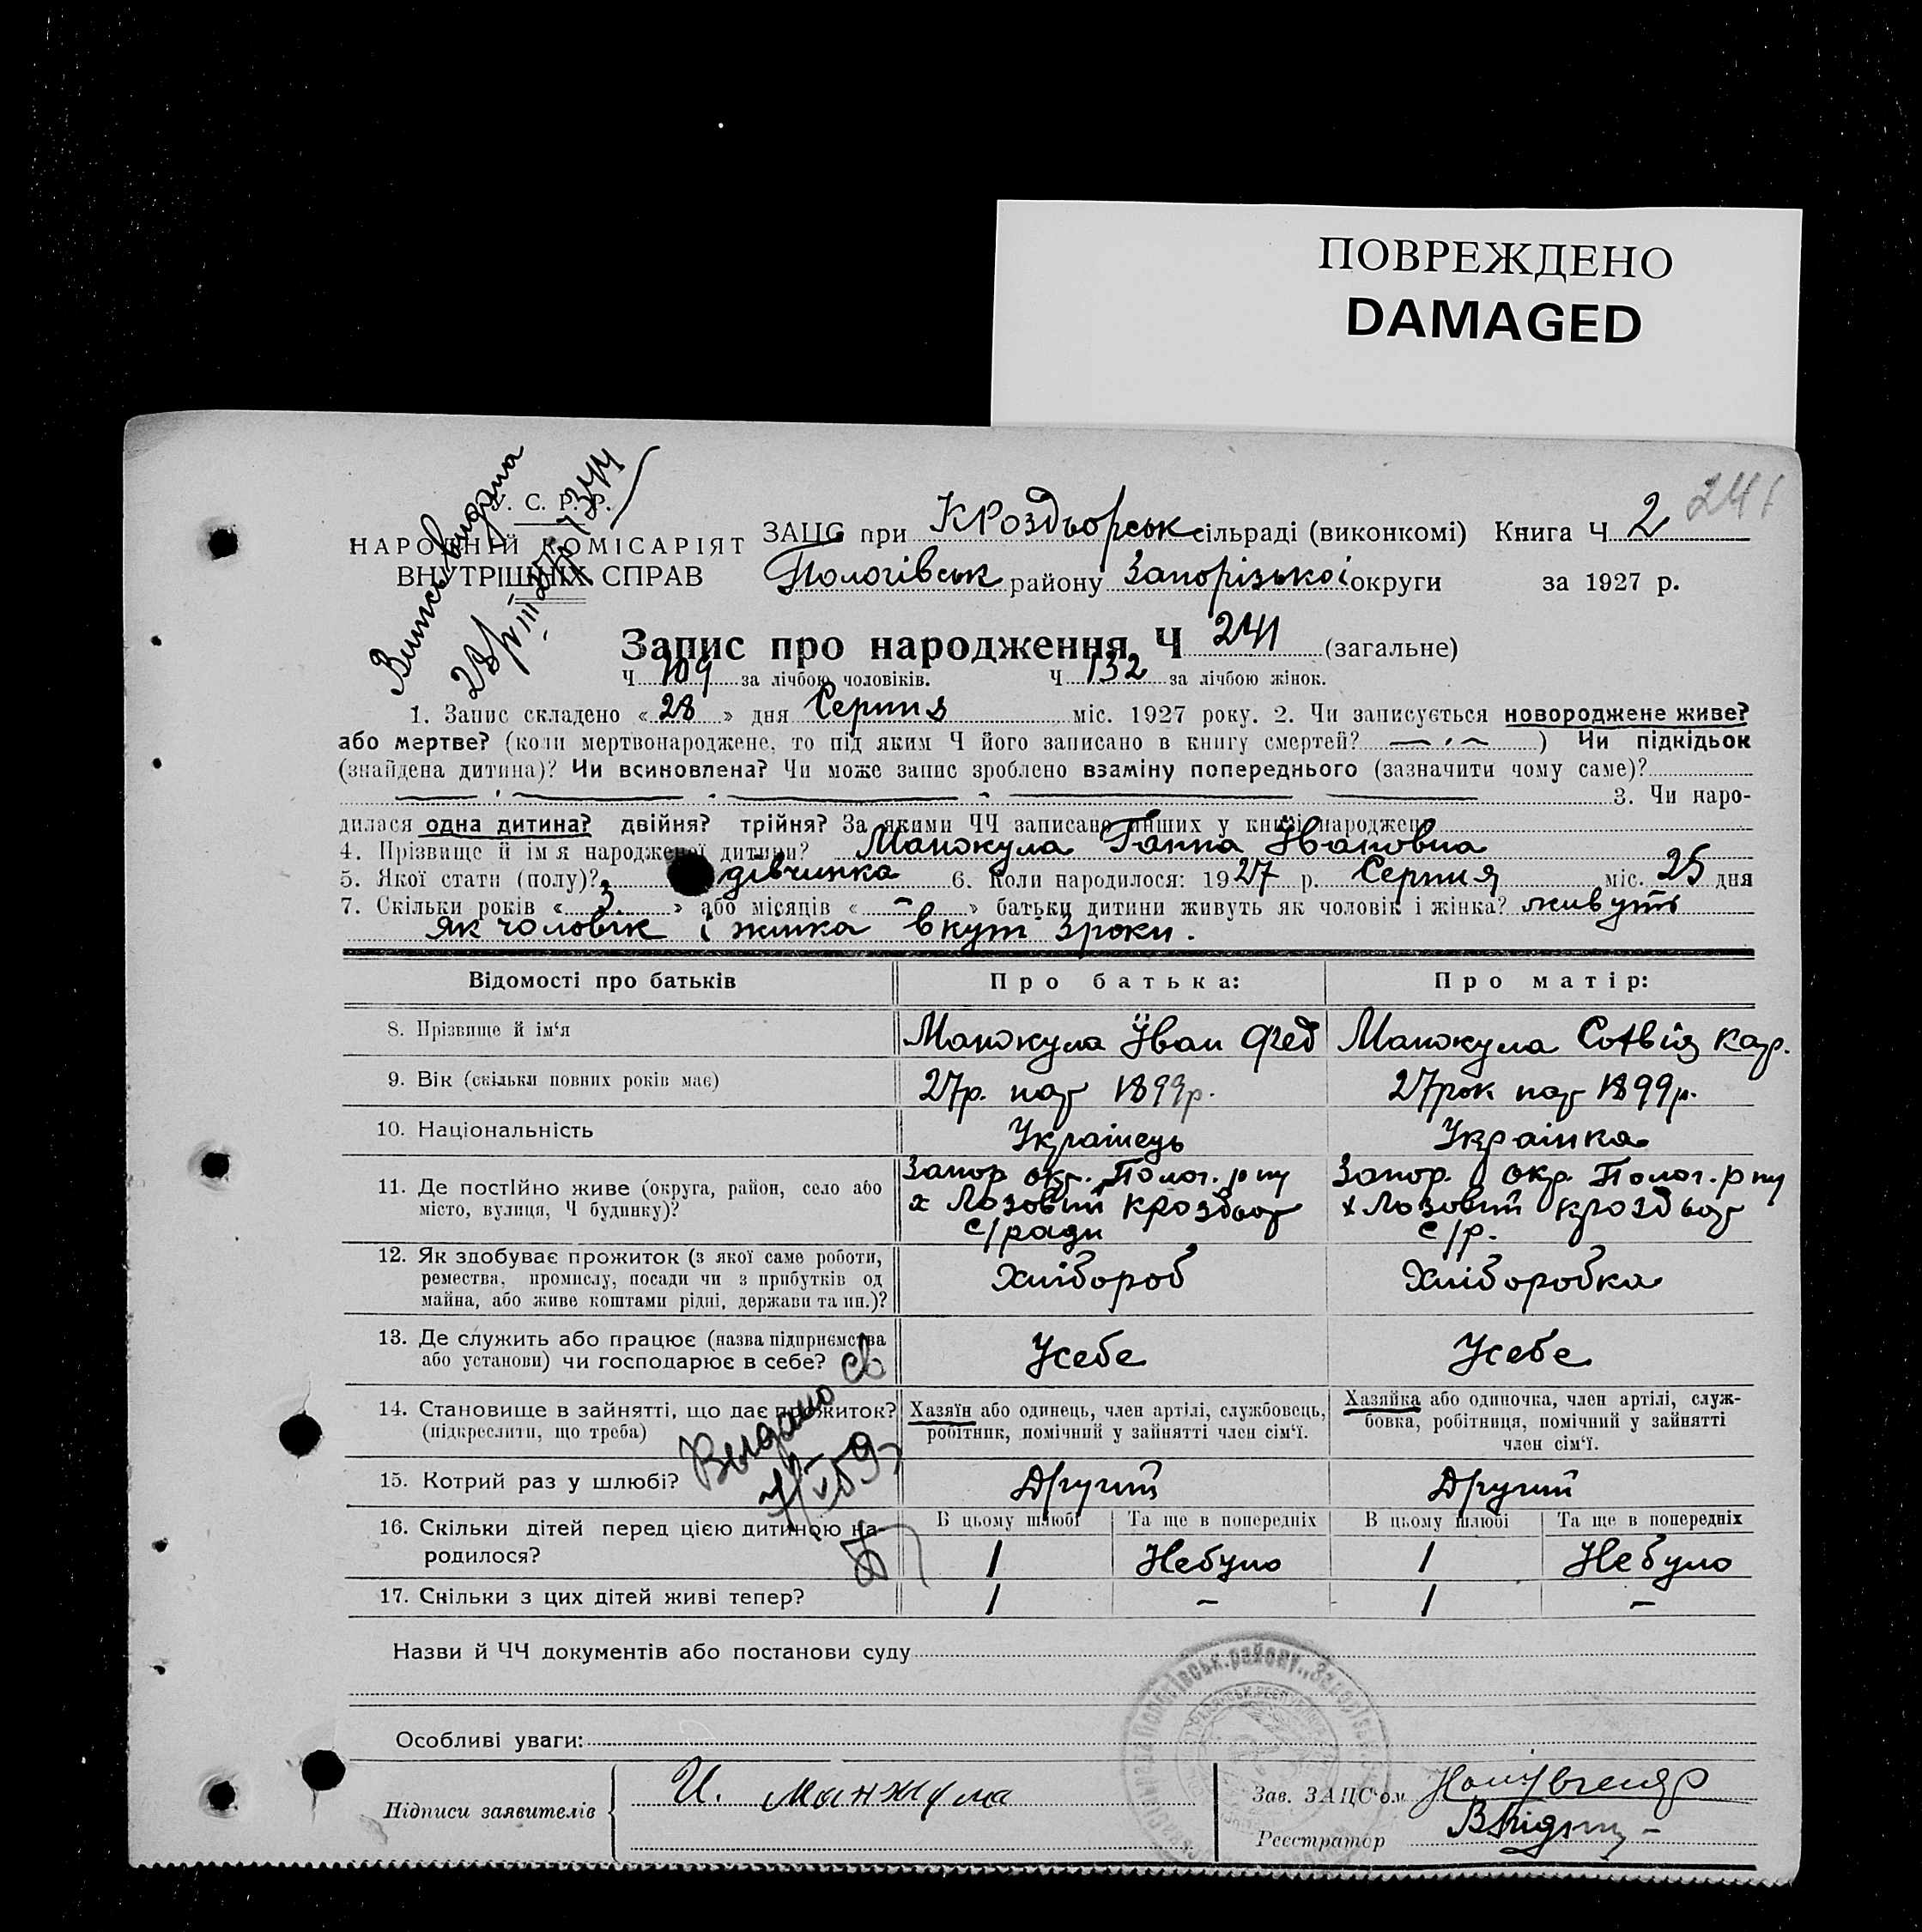 ПОВРЕЖДЕНО
DAMAGED
241
У. С. Р. Р.
НАРОДНІЙ КОМІСАРІЯТ
ВНУТРІШНІХ СПРАВ
Випись видана
ЗАЦС при КРоздорськ сільраді (виконкомі) Книга Ч 2
Пологівськ району Запорізької округи за 1927 р.
Запис про народження Ч 241 (загальне)
Ч 109 за лічбою чоловіків. Ч 132 за лічбою жінок.
1. Запис складено « 28 » дня Серпня міс. 1927 року. 2. Чи записується новороджене живе?
або мертве? (коли мертвонароджене, то під яким Ч його записано в книгу смертей? ) Чи підкідьок
(знайдена дитина)? Чи всиновлена? Чи може запис зроблено взаміну попереднього (зазначити чому саме)?
3. Чи наро-
дилася одна дитина? двійня? трійня? За якими ЧЧ записано инших у книзі народжень
4. Прізвище й ім'я народженої дитини? Манжула Ганна Івановна
5. Якої стати (полу)? дівчинка 6. Коли народилося: 1927 р. Серпня міс. 25 дня
7. Скільки років « 3 » або місяців « – » батьки дитини живуть як чоловік і жінка? живуть
як чоловік і жінка вкупі 3 роки.
Відомості про батьків Про батька: Про матір:
8. Прізвище й ім'я Манжула Іван Фед Манжула Софія Кар.
9. Вік (скільки повних років має) 27р. нар 1899р. 27рок нар 1899р.
10. Національність Українець Українка
11. Де постійно живе (округа, район, село або
місто, вулиця, Ч будинку)?
Запор окр. Полог. р ну
х Лозовий Кроздор
с/ради
Запор. окр. Полог. р ну
х Лозовий Кроздор
с/р.
12. Як здобуває прожиток (з якої саме роботи,
ремества, промислу, посади чи з прибутків од
майна, або живе коштами рідні, держави та ин.)?
Хлібороб Хліборобка
13. Де служить або працює (назва підприємства
або установи) чи господарює в себе?
Усебе Усебе
14. Становище в зайнятті, що дає прожиток?
(підкреслити, що треба)
Хазяїн або одинець, член артілі, службовець,
робітник, помічний у зайнятті член сім'ї.
Хазяйка або одиночка, член артілі, служ-
бовка, робітниця, помічний у зайнятті
член сім'ї.
Видано св
15. Котрий раз у шлюбі? Другий Другий
16. Скільки дітей перед цією дитиною на-
родилося?
В цьому шлюбі Та ще в попередніх В цьому шлюбі Та ще в попередніх
1 Небуло 1 Небуло
17. Скільки з цих дітей живі тепер? 1 – 1 –
Назви й ЧЧ документів або постанови суду
Особливі уваги:
Підписи заявителів И. Манжула
Зав. ЗАЦС'ом
Реєстратор